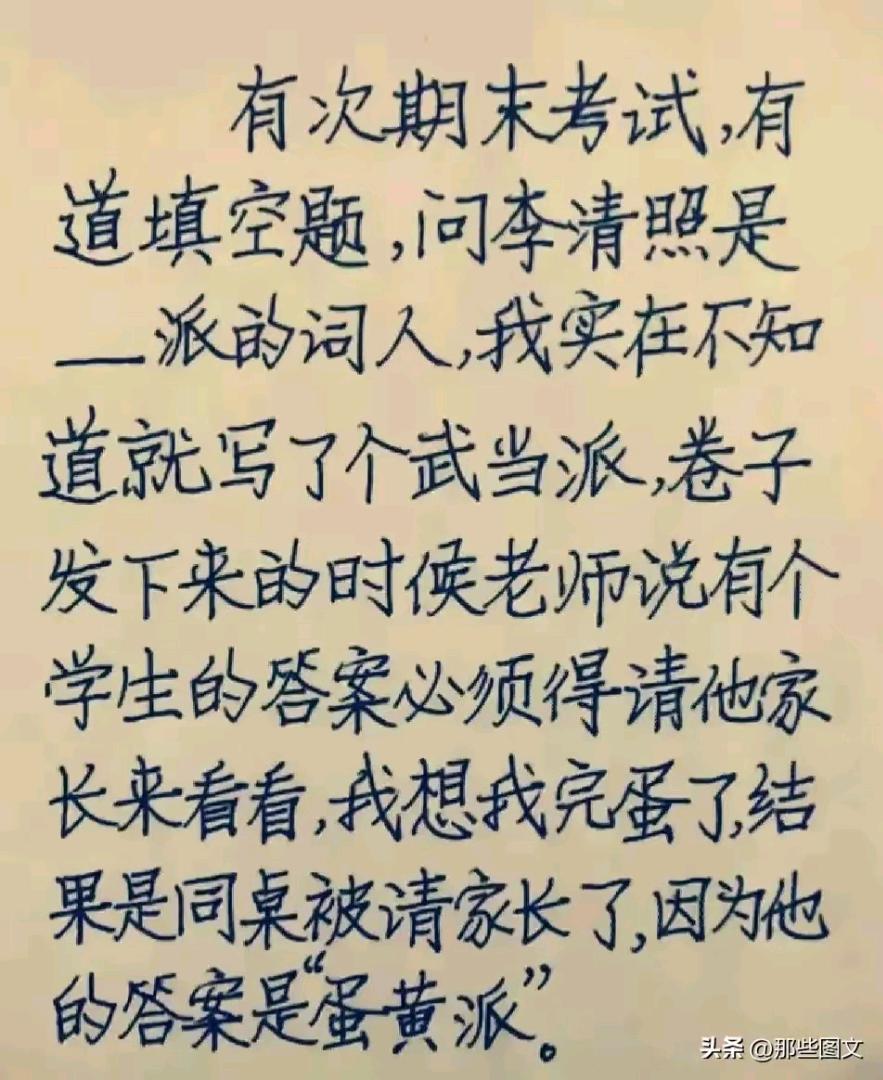 有次期末考试,有
道填空题,问李清照是
__派的词人,我实在不知
道就写了个武当派,卷子
发下来的时候老师说有个
学生的答案必须得请他家
长来看看,我想我完蛋了,结
果是同桌被请家长了,因为他
的答案是“蛋黄派”。
头条 @那些图文